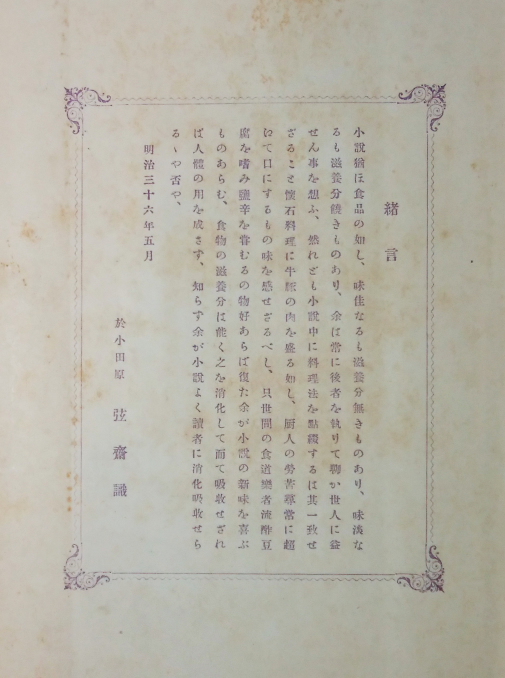 緒言
小說猶ほ食品の如し、味佳なるも滋養分無きものあり、味淡な
るも滋養分饒きものあり、余は常に後者を執りて聊か世人に益
せん事を想ふ、然れども小說中に料理法を點綴するは其一致せ
ざること懷石料理に牛豚の肉を盛る如し、厨人の勞苦尋常に超
にて口にするもの味を感せざるべし、只世間の食道樂者流酢豆
腐を嗜み鹽辛を嘗むるの物好あらば復た余が小說の新味を喜ぶ
ものあらむ、食物の滋養分は能く之を消化して而て吸收せざれ
ば人體の用を成さず、知らず余が小說よく讀者に消化吸收せら
るゝや否や、
明治三十六年五月
於小田原 弦齋識